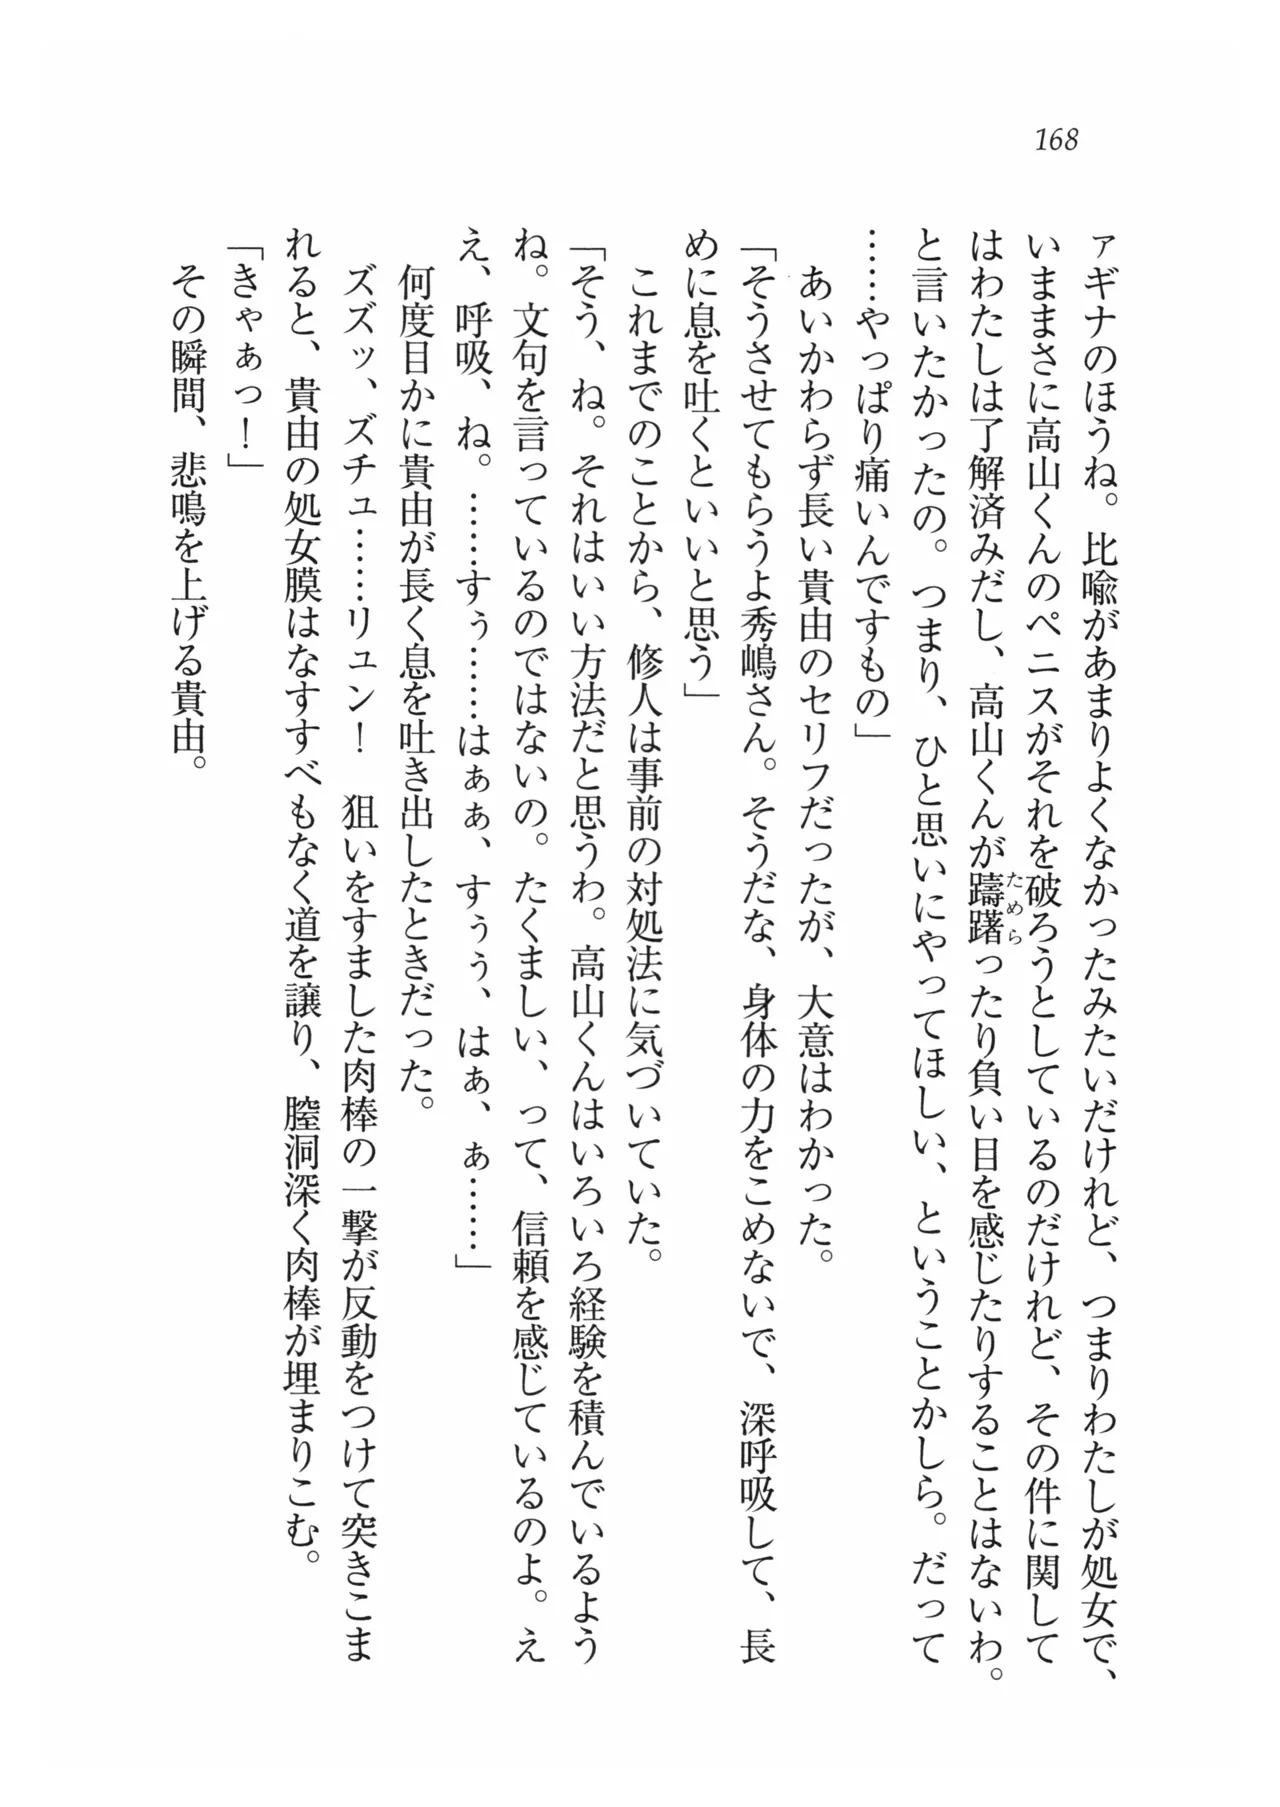 168
ァギナのほうね。比喩があまりよくなかったみたいだけれど、つまりわたしが処女で、
いままさに高山くんのペニスがそれを破ろうとしているのだけれど、その件に関して
はわたしは了解済みだし、高山くんが躊躇ったり負い目を感じたりすることはないわ。
ためら
と言いたかったの。つまり、ひと思いにやってほしい、ということかしら。だって
……やっぱり痛いんですもの」
あいかわらず長い貴由のセリフだったが、大意はわかった。
「そうさせてもらうよ秀嶋さん。そうだな、身体の力をこめないで、深呼吸して、長
めに息を吐くといいと思う」
これまでのことから、修人は事前の対処法に気づいていた。
「そう、ね。それはいい方法だと思うわ。高山くんはいろいろ経験を積んでいるよう
ね。文句を言っているのではないの。たくましい、って、信頼を感じているのよ。え
え、呼吸、ね。……すぅ……はぁぁ、すぅぅ、はぁ、ぁ……」
何度目かに貴由が長く息を吐き出したときだった。
ズズッ、ズチュ……リュン！　狙いをすました肉棒の一撃が反動をつけて突きこま
れると、貴由の処女膜はなすすべもなく道を譲り、膣洞深く肉棒が埋まりこむ。
「きゃぁっ！」
その瞬間、悲鳴を上げる貴由。